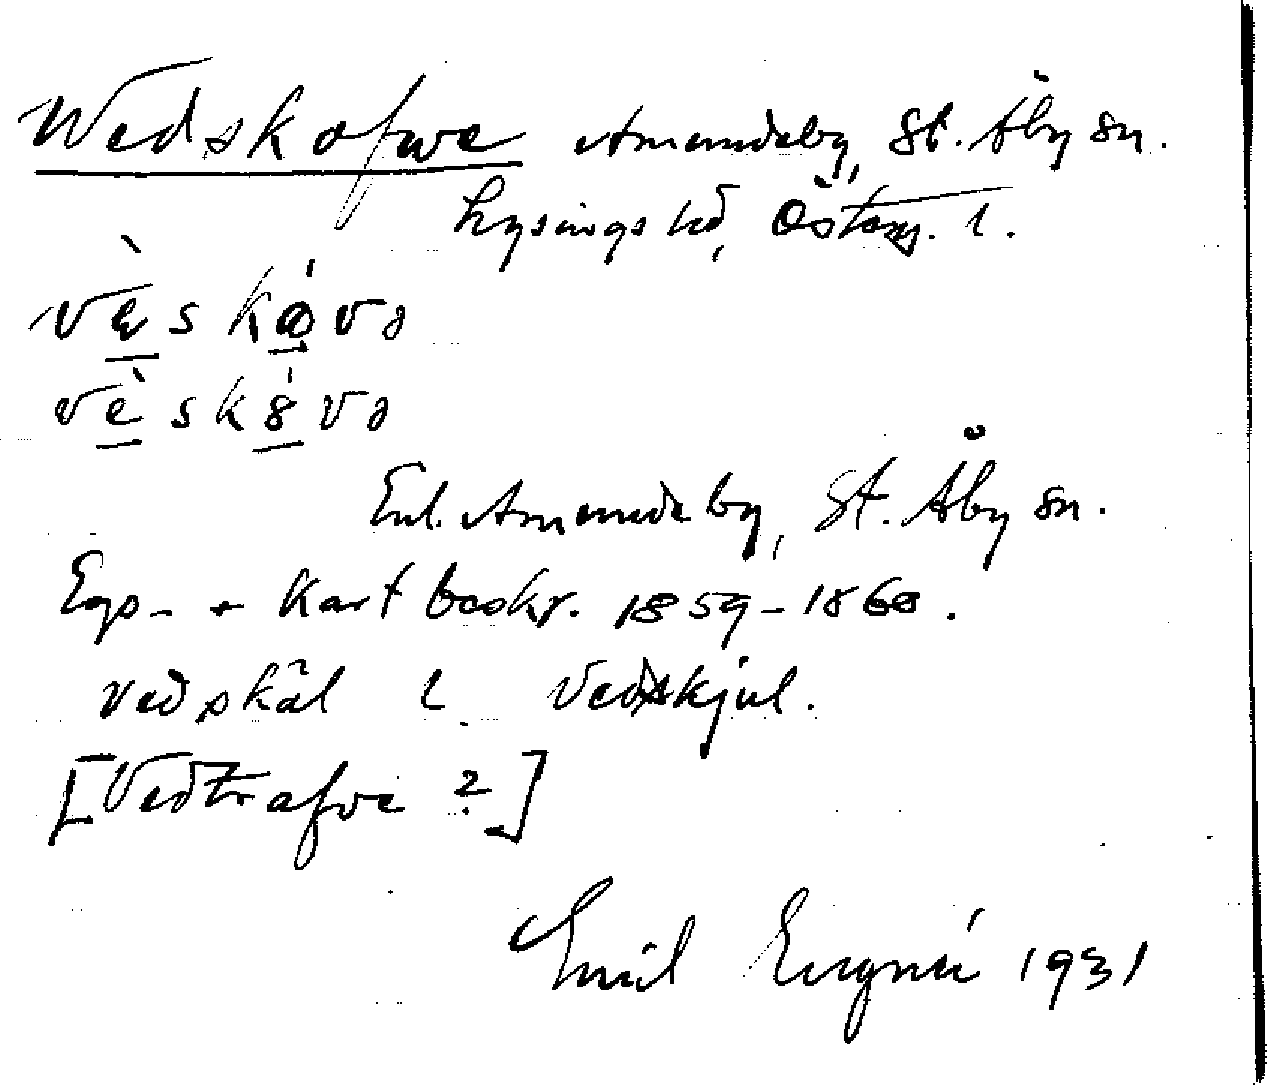 Wedskofwe Amundeby, St. Åby sn.
Lysings hd, Östg. l.
vèskóvə
vèsk8́və
Enl. Amundeby, St. Åby sn.
Egs- + Kartbeskr. 1859-1860.
vedskål l. vedskjul.
[Vedtrafve ?]
Emil 1931